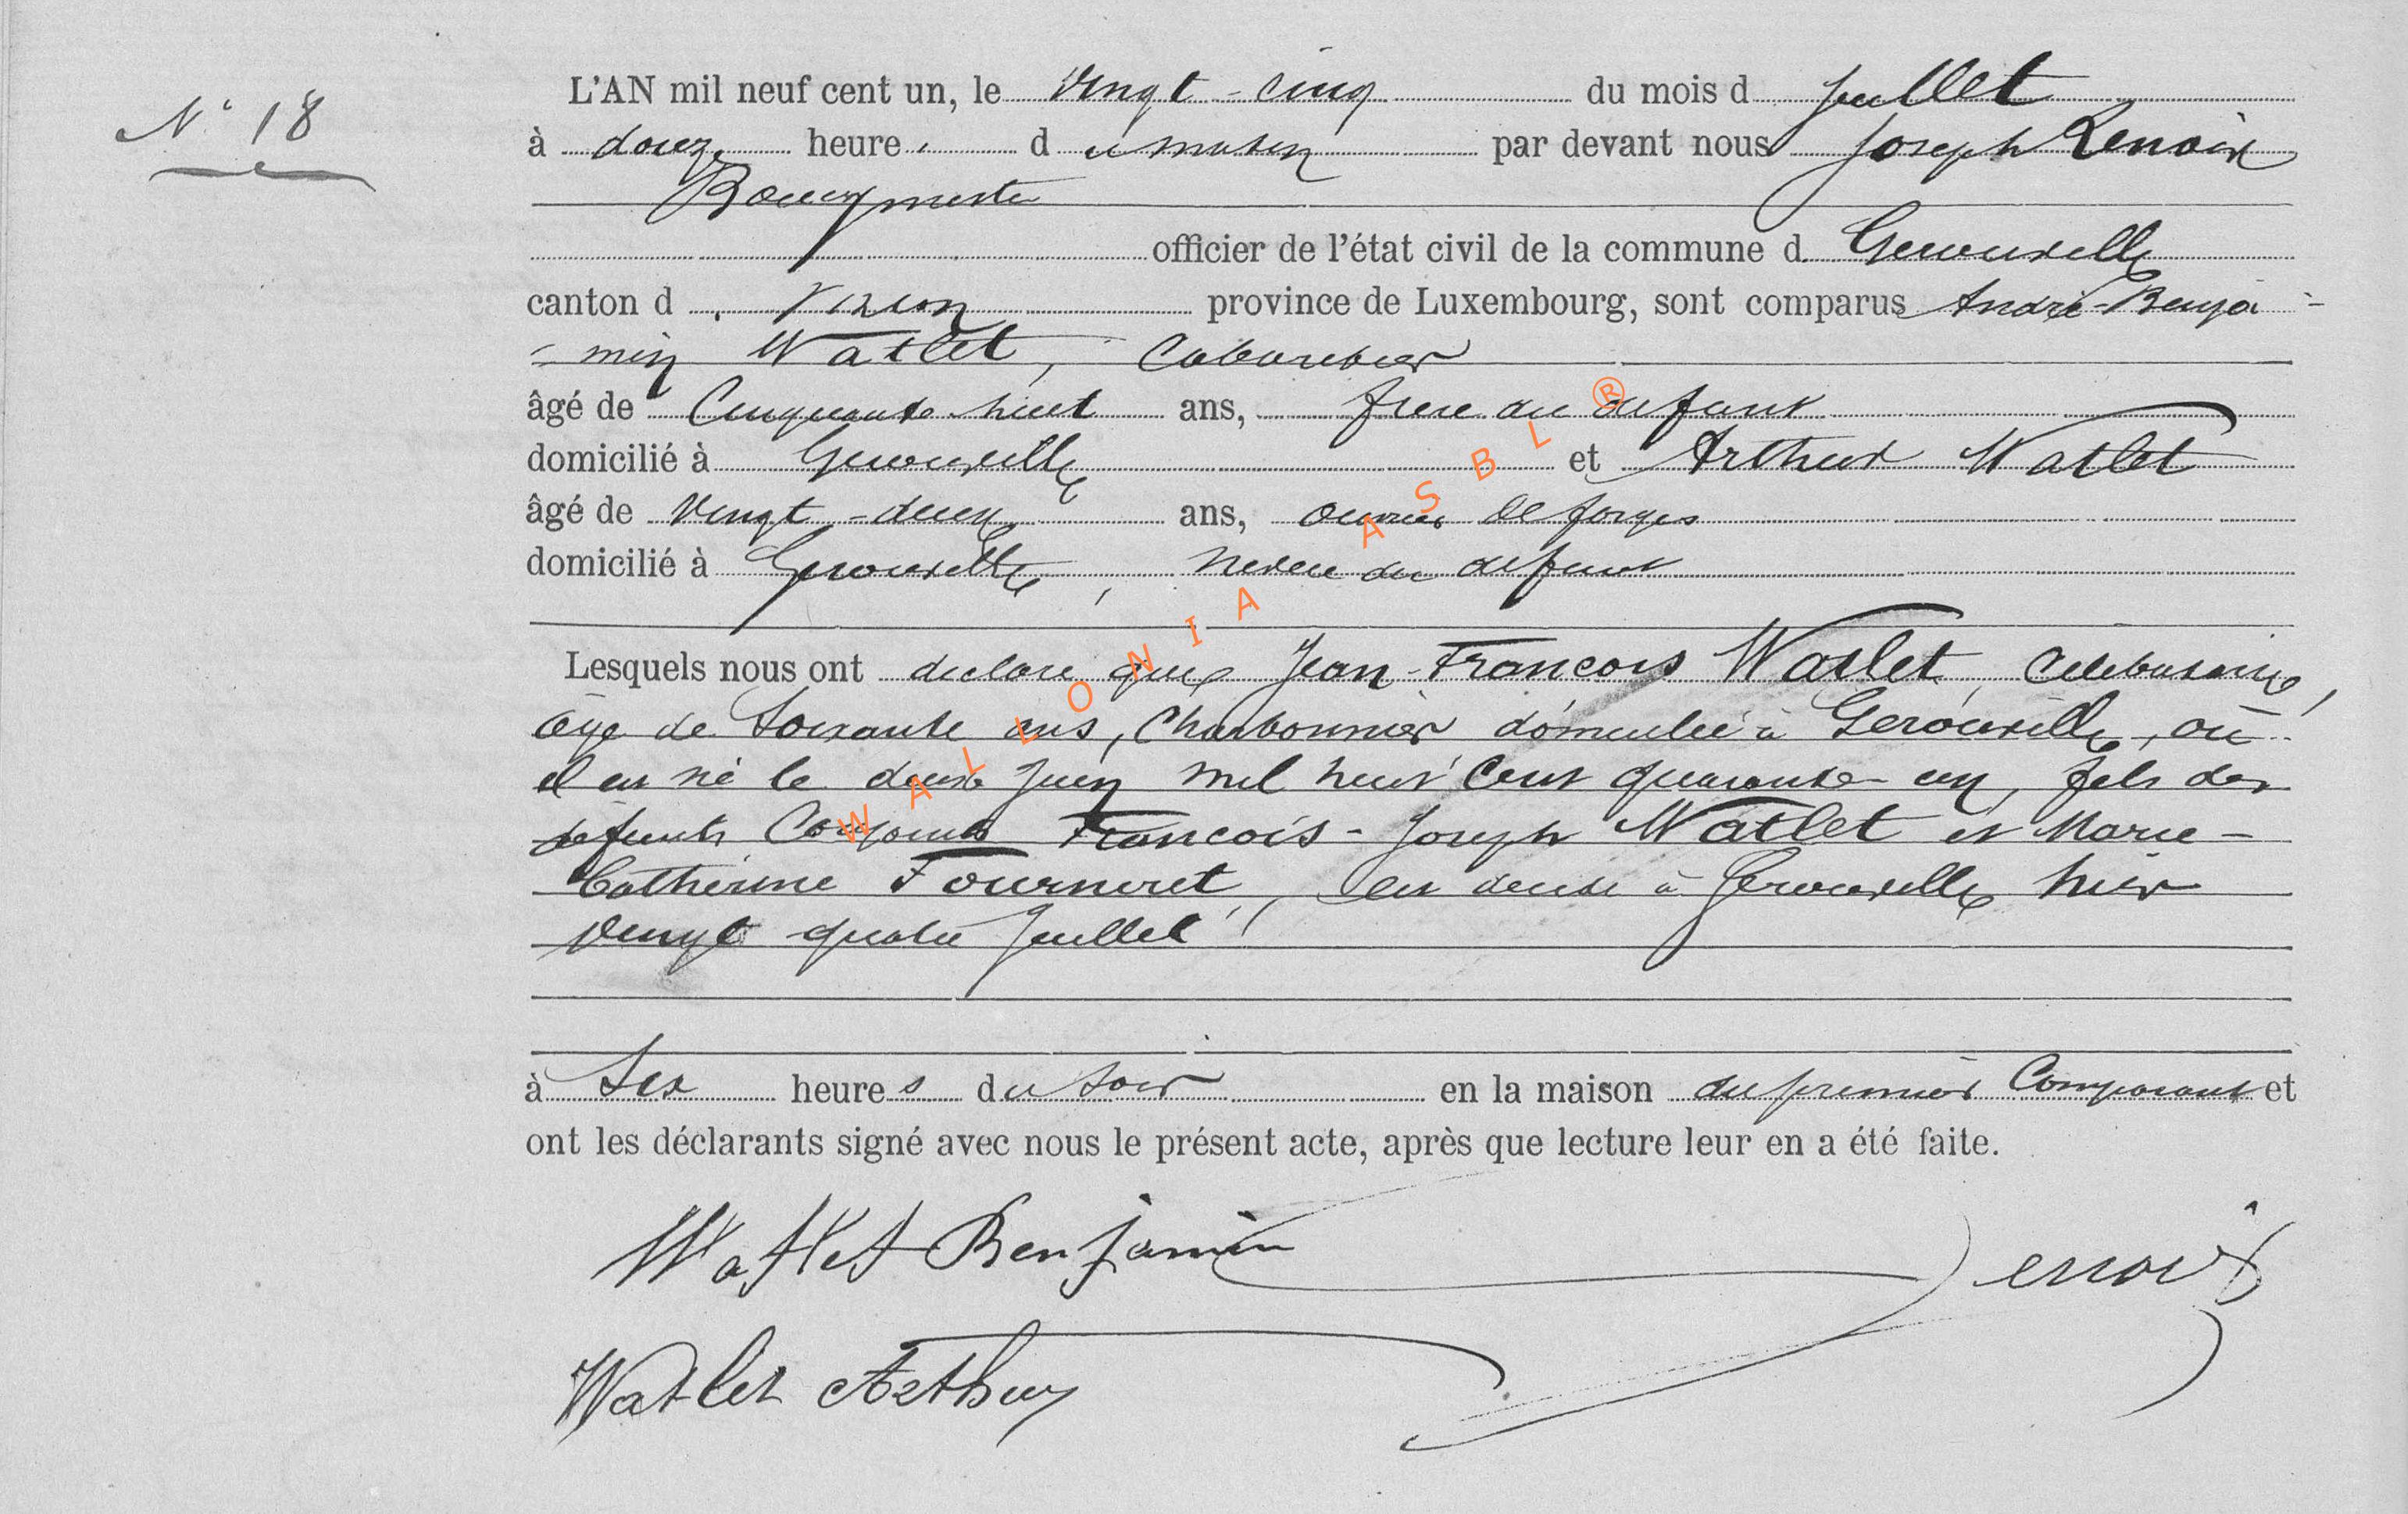 N° 18
L'AN mil neuf cent un, le vingt-cinq du mois d juillet
à douze heure s du matin par devant nous Joseph Lenoir
Bourgmestre
officier de l'état civil de la commune d Gerouville
canton d Virton province de Luxembourg, sont comparus André-Benja-
-min Watlet, Cabaretier
âgé de Cinquante huit ans, frère du défunt
domicilié à Gerouville et Arthur Watlet
âgé de vingt-deux ans, ouvrier de forges
domicilié à Gerouville, neveu du défunt
Lesquels nous ont déclaré que Jean-François Watlet, Célibataire,
âgé de soixante ans, Charbonnier domicilié à Gerouville, où
il est né le deux juin mil huit cent quarante-un, fils des
défunts Conjoints François-Joseph Watlet et Marie-
Catherine Fourneret, est décédé à Gerouville hier
vingt quatre juillet
à six heure s du soir en la maison du premier Comparant et
ont les déclarants signé avec nous le présent acte, après que lecture leur en a été faite.
Watlet Benjamin Lenoir
Watlet Arthur
WALLONIA ASBL ®